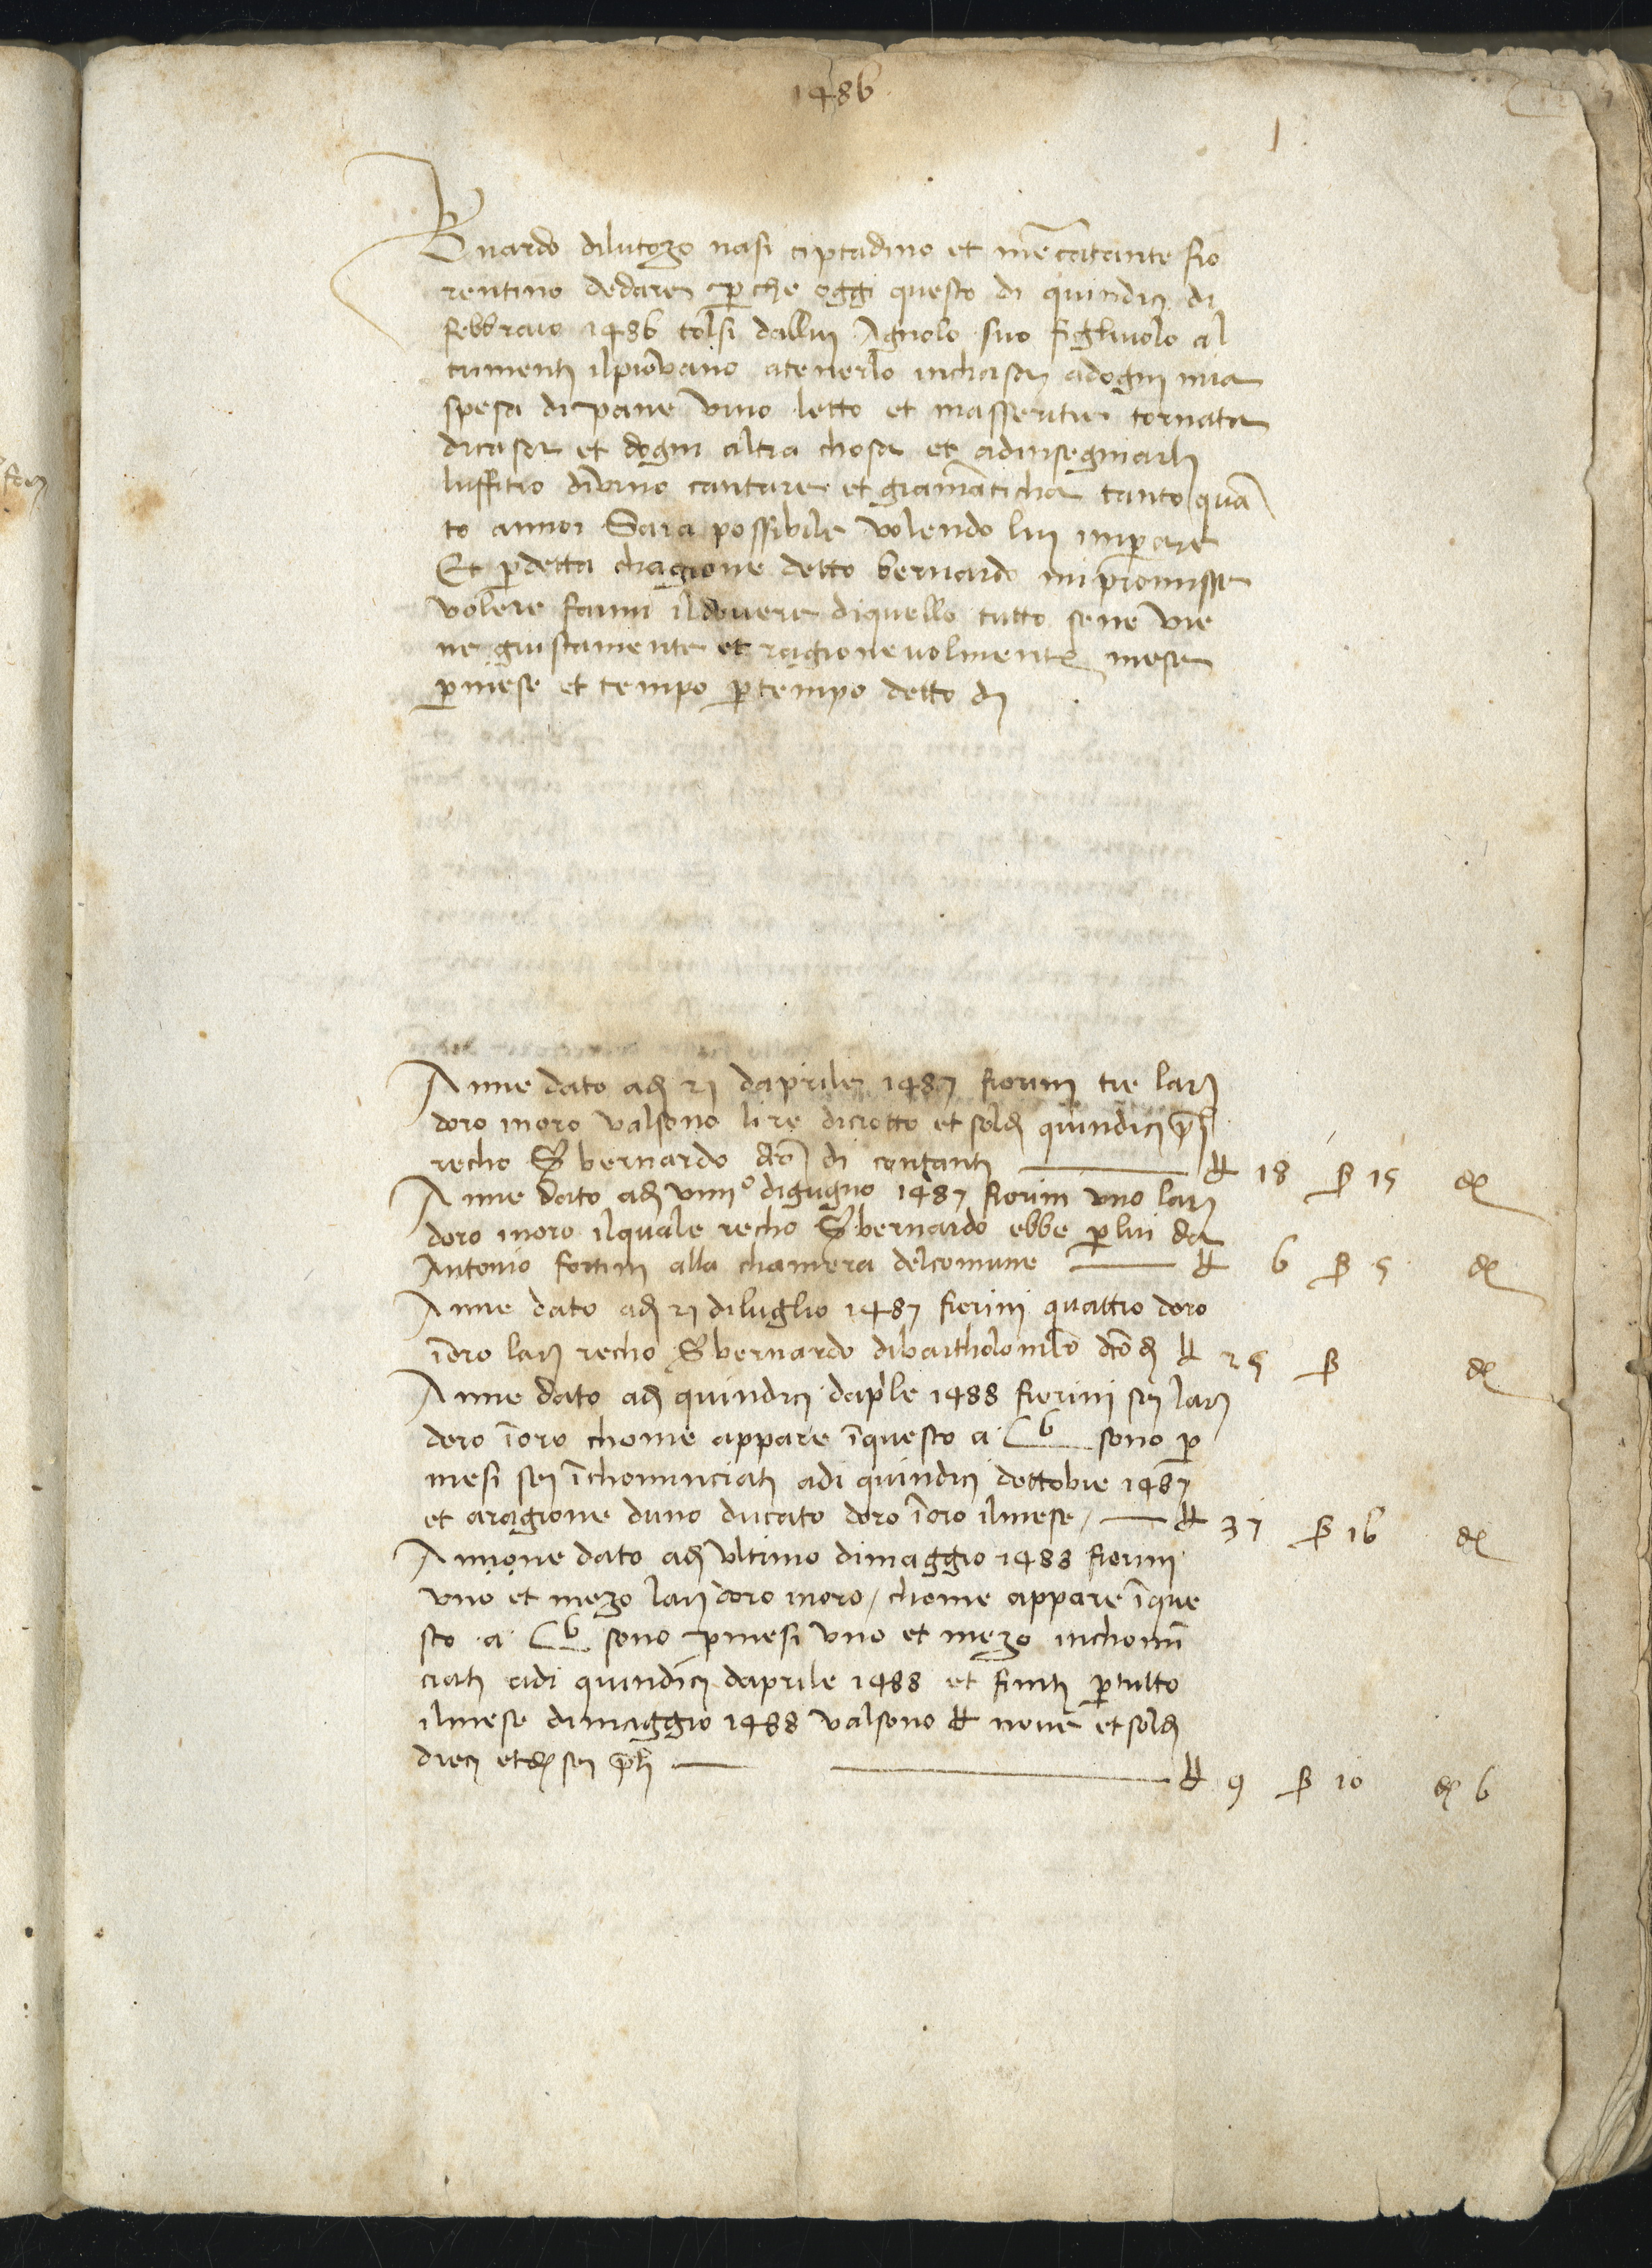 1486
1
Bnardo dilutozo nasi ciptadino et mecatante fio
rentino dedare perche oggi questo di quindicj di
febbraio 1486 tolsi dallui Agnolo suo figliuolo al
trimentj ilpiovano atenerlo inchasa adogni mia
spesa dipane vino letto et masseritie tornata
dicasa et dogni altra chosa et adinsegniarlj
luffitio divino cantare et gramaticha tanto quā
to annoi Sara possibile volendo luj imparare
Et perdetta chagione detto bernardo mi promisse
volere farmi ildovere diquello tutto sene vie
ne giustamente et ragionevolmente mese
permese et tempo pertempo detto dj
Anne dato adj 21 daprile 1487 fiorinj tre larj
doro inoro valsono lire diciotto et soldj quindicj pli
recho S bernardo dco di contantj — ₶ 18 ß 15 ₰
Anne dato adj viiiiº digugno 1487 fiorin uno larj
doro inoro ilquale recho S bernardo ebbe perlui da
Antonio fortinj alla chamera delcomune — ₶ 6 ß 5 ₰
Anne dato adj 21 diluglio 1487 fiorinj quattro doro
īoro larj recho S bernardo dibartholomeo dco dj ₶ 25 ß ₰
Anne dato adj quindicj daple 1488 fiorinj sej larj
doro īoro chome appare īquesto a C 6 sono per
mesi sej īchominciatj adi quindicj dottobre 1487
et aragione duno ducato doro īoro ilmese / — ₶ 37 ß 16 ₰
Annone dato adj ultimo dimaggio 1488 fiorinj
uno et mezo larj doro inoro / chome appare īque
sto a C 6 sono permesi uno et mezo inchomī
ciatj adi quindicj daprile 1488 et finitj pertutto
ilmese dimaggio 1488 valsono ₶ nove et soldj
diecj et ₰ sej pli — ₶ 9 ß 10 ₰ 6